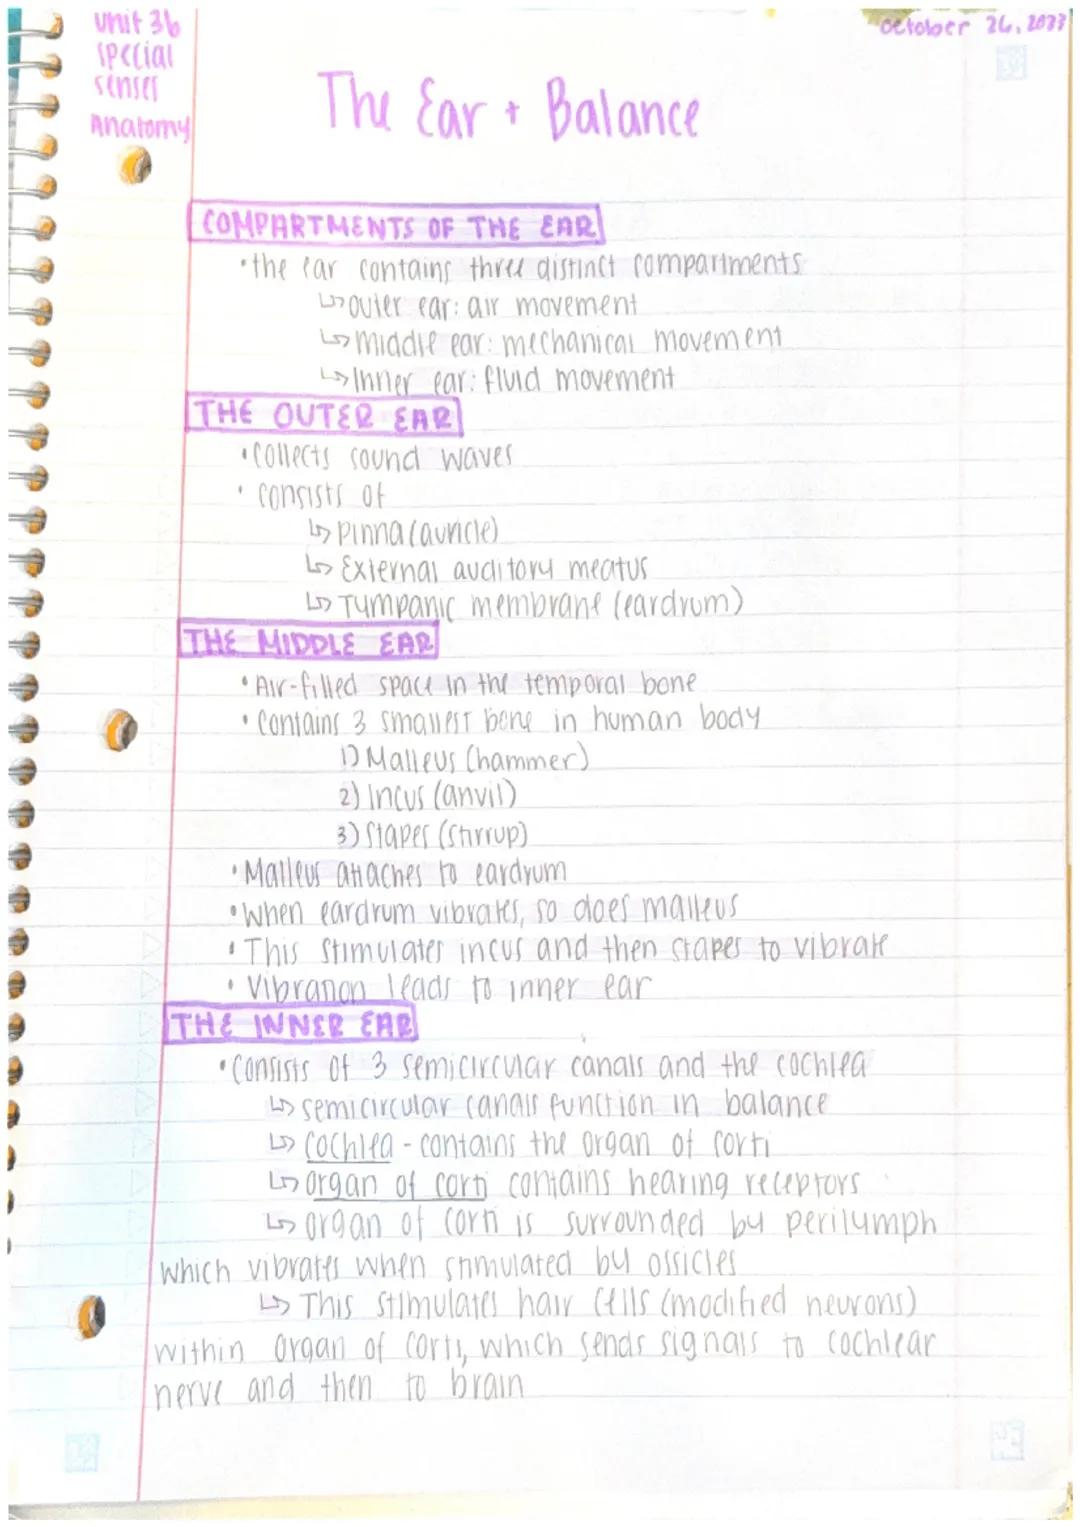 unit 3b
special
senses
Anatomy
october 26, 2023
The Ear + Balance
COMPARTMENTS OF THE EAR
• the ear contains three distinct compartments
↳ outer ear: air movement
↳ middle ear: mechanical movement
↳ Inner ear: fluid movement
THE OUTER EAR
• collects sound waves
• consists of
↳ pinna (auricle)
↳ External auditory meatus
↳ Tympanic membrane (eardrum)
THE MIDDLE EAR
• Air-filled space in the temporal bone
• Contains 3 smallest bone in human body
1) Malleus (hammer)
2) Incus (anvil)
3) Stapes (stirrup)
• Malleus attaches to eardrum
• When eardrum vibrates, so does malleus
• This stimulates incus and then stapes to vibrate
• Vibration leads to inner ear
THE INNER EAR
• Consists of 3 semicircular canals and the cochlea
↳ semicircular canals function in balance
↳ cochlea - contains the organ of corti
↳ organ of corti contains hearing receptors
↳ organ of corti is surrounded by perilymph
which vibrates when stimulated by ossicles
↳ This stimulates hair cells (modified neurons)
within organ of corti, which sends signals to cochlear
nerve and then to brain